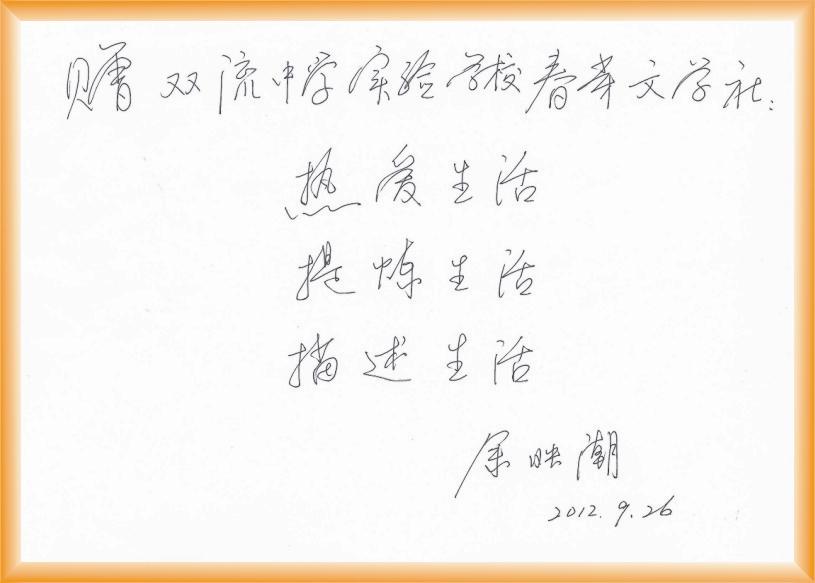 赠双流中学实验学校春华文学社:
热爱生活
提炼生活
描述生活
余映潮
2012.9.26